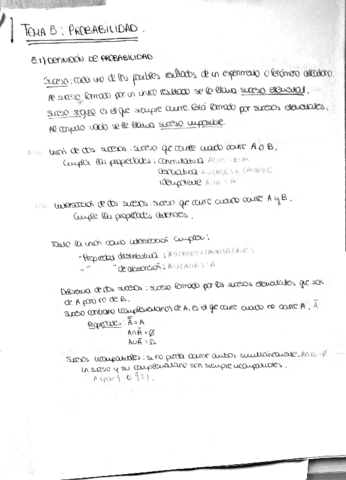 TEMA 5: PROBABILIDAD.
5.1) DEFINICIÓN DE PROBABILIDAD
Suceso: cada uno de los posibles resultados de un experimento o fenómeno aleatorio.
Al suceso formado por un único resultado se le llama suceso elemental.
Suceso seguro es el que siempre ocurre. Está formado por sucesos elementales.
Al conjunto vacío se le llama suceso imposible.
Unión de dos sucesos: suceso que ocurre cuando ocurre A o B.
Cumple las propiedades: conmutativa
asociativa
idempotente
Intersección de dos sucesos: suceso que ocurre cuando ocurre A y B.
Cumple las propiedades anteriores.
Tanto la unión como intersección cumplen:
- Propiedad distributiva:
- " " de absorción:
Diferencia de dos sucesos: suceso formado por los sucesos elementales que son
de A pero no de B.
Suceso contrario (complementario) de A, es el que ocurre cuando no ocurre A. Ā
Propiedades: A̿ = A
A∩Ā = Ø
A∪Ā = Ω
Sucesos incompatibles: si no pueden ocurrir ambos simultáneamente. A∩B = Ø
Un suceso y su complementario son siempre incompatibles.